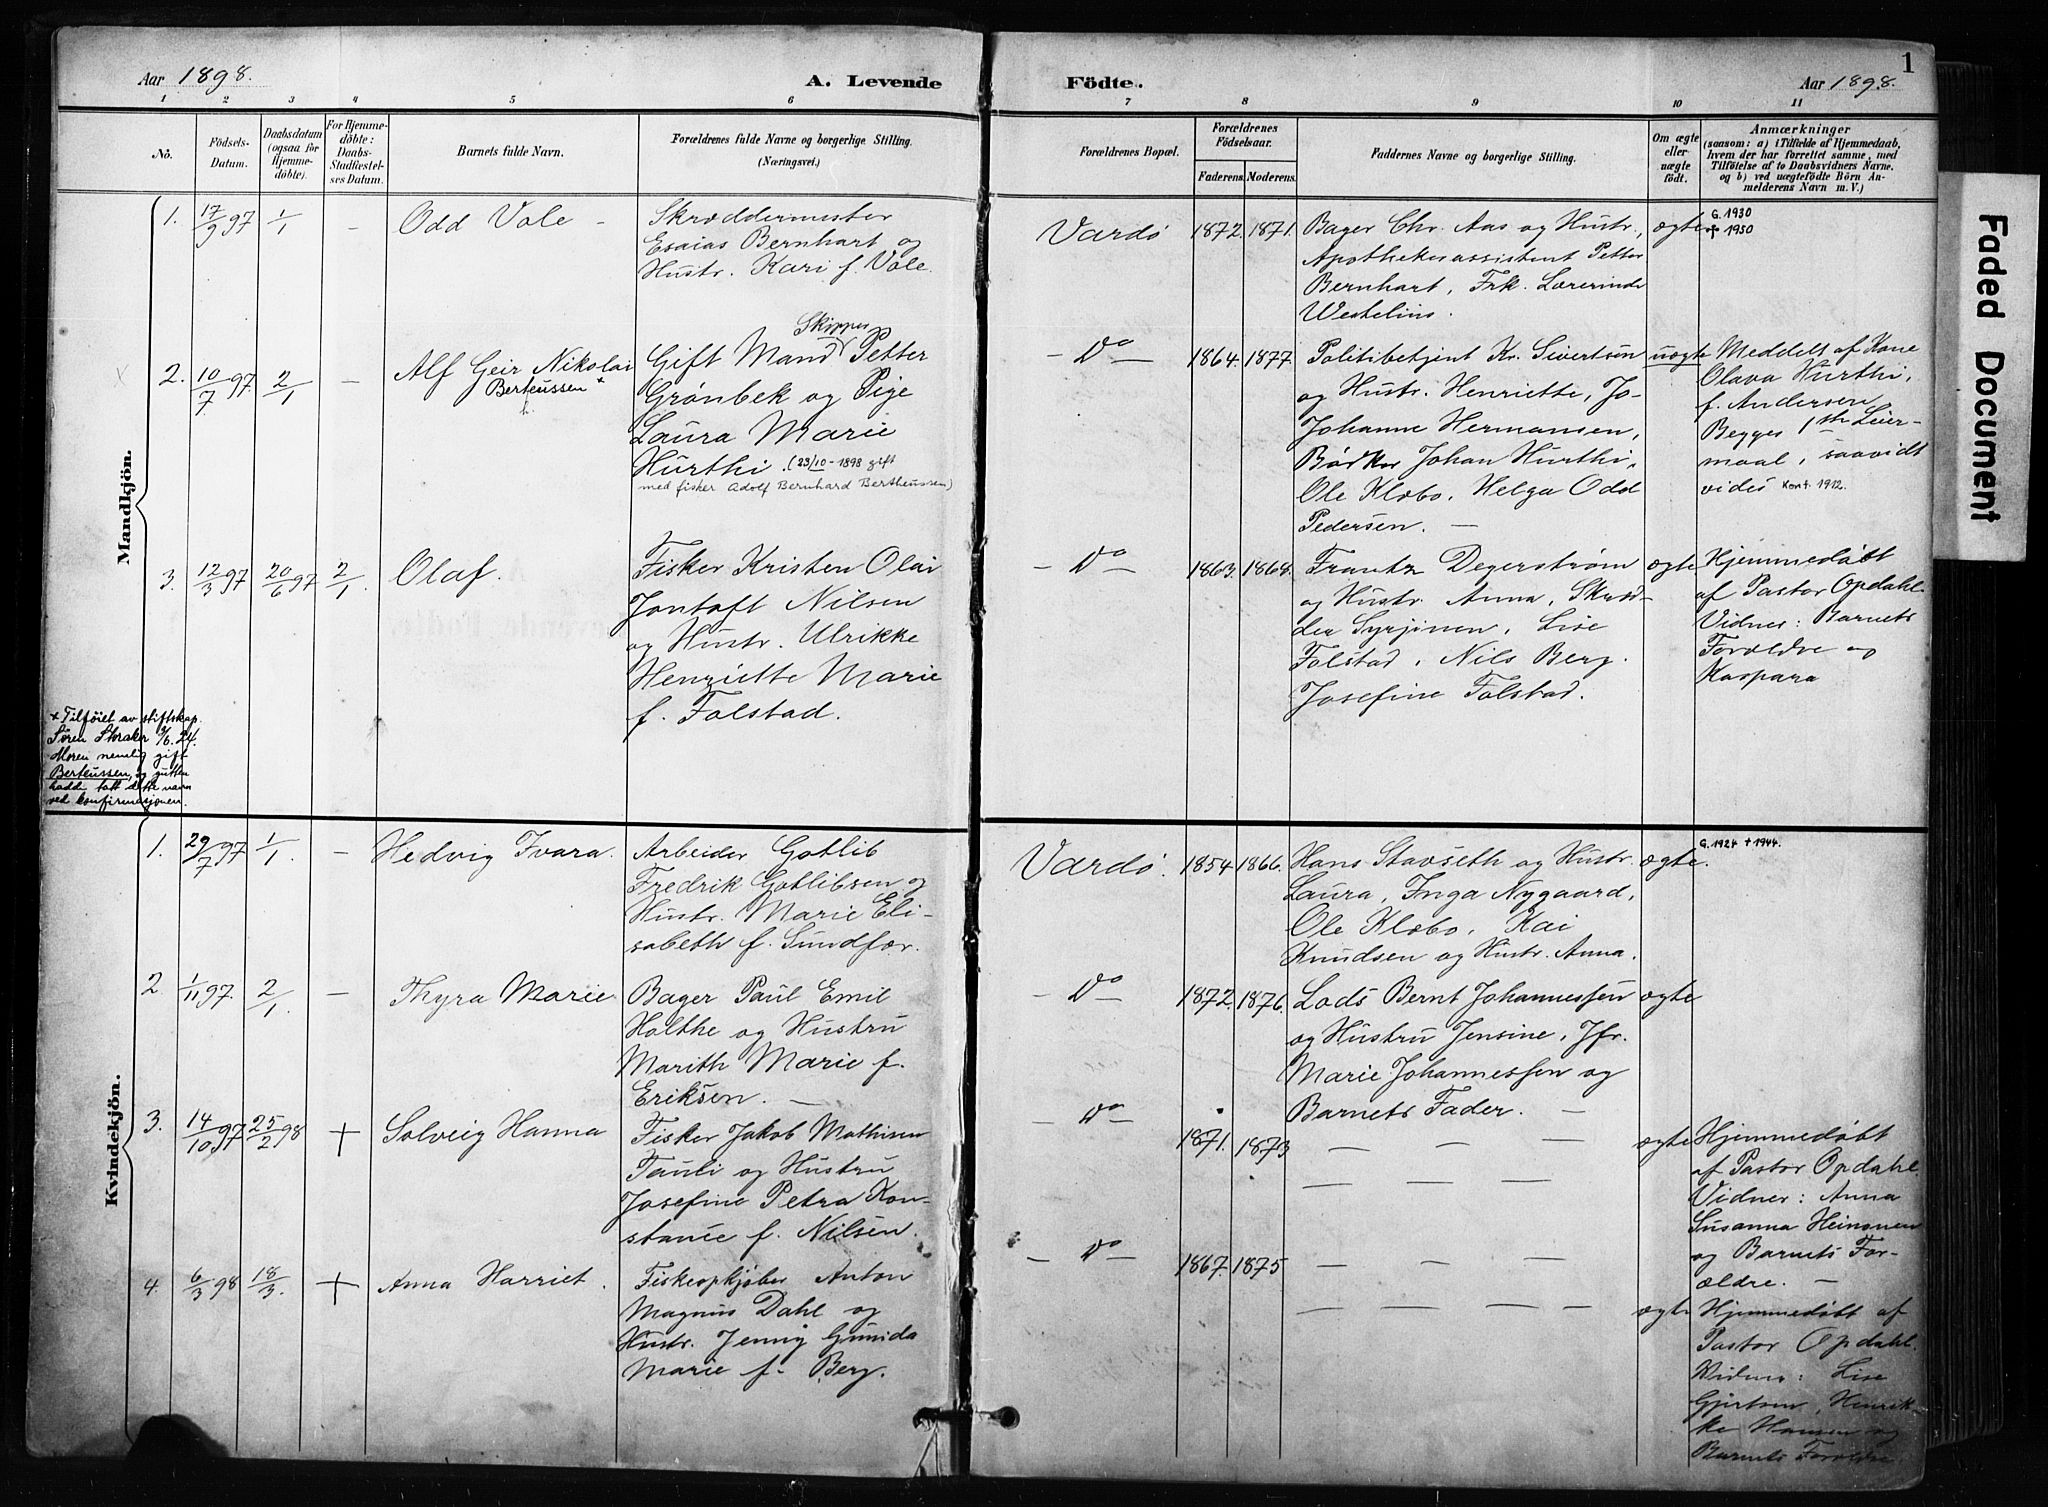 Aar 1898.
A. Levende
Födte.
Aar 1898.
1
1 2 3 4 5 6 7 8 9 10 11
No.
Födsels-
Datum.
Daabsdatum
(ogsaa for
Hjemme-
döbte).
For Hjemme-
döbte:
Daabs-
Stadfæstel-
ses Datum.
Barnets fulde Navn.
Forældrenes fulde Navne og borgerlige Stilling.
(Næringsvei.)
Forældrenes Bopæl.
Forældrenes
Födselsaar.
Faderens. Moderens.
Faddernes Navne og borgerlige Stilling.
Om ægte
eller
uægte
födt.
Anmærkninger
(saasom: a) i Tilfælde af Hjemmedaab,
hvem der har forrettet samme, med
Tilföielse af to Daabsvidners Navne.
og b) ved uægtefödte Börn An-
melderens Navn m. V.)
Mandkjön.
1. 17/9 97 1/1 – Odd Vole –
Skræddermester
Esaias Bernhart og
Hustr. Kari f. Vole.
Vardø 1872. 1871.
Bager Chr. Aas og Hustr.,
Apothekerassistent Petter
Bernhart, Frk. Lærerinde
Westelius.
ægte
G. 1930
† 1950
2. 10/7 97 2/1 – Alf Geir Nikolai
Berteussen +
Skipper
Gift Mand Petter
Grønbek og Pige
Laura Marie
Hurthi. (23/10 - 1898 gift
med fisker Adolf Bernhard Bertheussen)
– Do – 1864. 1877.
Politibetjent Kr. Sivertsen
og Hustr. Henriette, Jo-
Johanne Hermansen,
Bødker Johan Hurthi,
Ole Klæbo, Helga Odd
Pedersen. –
uægte
Meddelt af Kone
Olava Hurthi,
f. Andersen
Begges 1th Leier-
maal, saavidt
vides Konf. 1912.
3. 12/3 97 20/6 97 2/1. Olaf.
Fisker Kristen Olai
Jontoft Nilsen
og Hustr. Ulrikke
Henriette Marie
f. Folstad.
– Do – 1863. 1864.
Frantz Degerström
og Hustr. Anna, Skræd-
der Syrjinen, Lise
Folstad, Nils Berg.
Josefine Folstad.
ægte
Hjemmedøbt
af Pastor Opdahl.
Vidner: Barnets
Forældre og
Kaspara
+ Tilföiet av stiftskap.
Sören 6.24.
Moren nemlig gift
Berteussen, og gutten
hadde tatt dette navn
ved konfirmasjonen.
Kvindekjön.
1. 29/7 97 1/1. – Hedvig Ivara.
Arbeider Gotlib
Fredrik Gotlibsen og
Hustr. Marie Eli-
sabeth f. Sundfær.
Vardø. 1854 1866.
Hans Stavseth og Hustr.
Laura, Inga Nygaard,
Ole Klæbo, Kai
Knudsen og Hustr. Anna.
ægte.
G. 1924 + 1944.
2. 1/11 97. 2/1 – Thyra Marie
Bager Paul Emil
Holthe og Hustru
Marith Marie f.
Eriksen. –
– Do – 1872. 1876.
Lods Bernt Johannessen
og Hustru Jensine, Jfr.
Marie Johannessen og
Barnets Fader. –
ægte
3. 14/10 97 25/2 98 + Solveig Hanna
Fisker Jakob Mathisen
Tauli og Hustru
Josefine Petra Kon-
stance f. Nilsen.
– Do – 1871. 1873
– – –
– – – –
ægte
Hjemmedøbt
af Pastor Opdahl.
Vidner: Anna
Susanna Heinonen
og Barnets For-
ældre. –
4. 6/3 98 18/3. + Anna Harriet.
Fiskeopkjøber Anton
Magnus Dahl og
Hustr. Jenny Gunida
Marie f. Berg.
– Do – 1867. 1875
– – –
– – – –
ægte
Hjemmedøbt af
Pastor Opdahl.
Vidner: Lise
Gjertsen, Henrik-
ke Hansen og
Barnets Forældre.
Faded Document